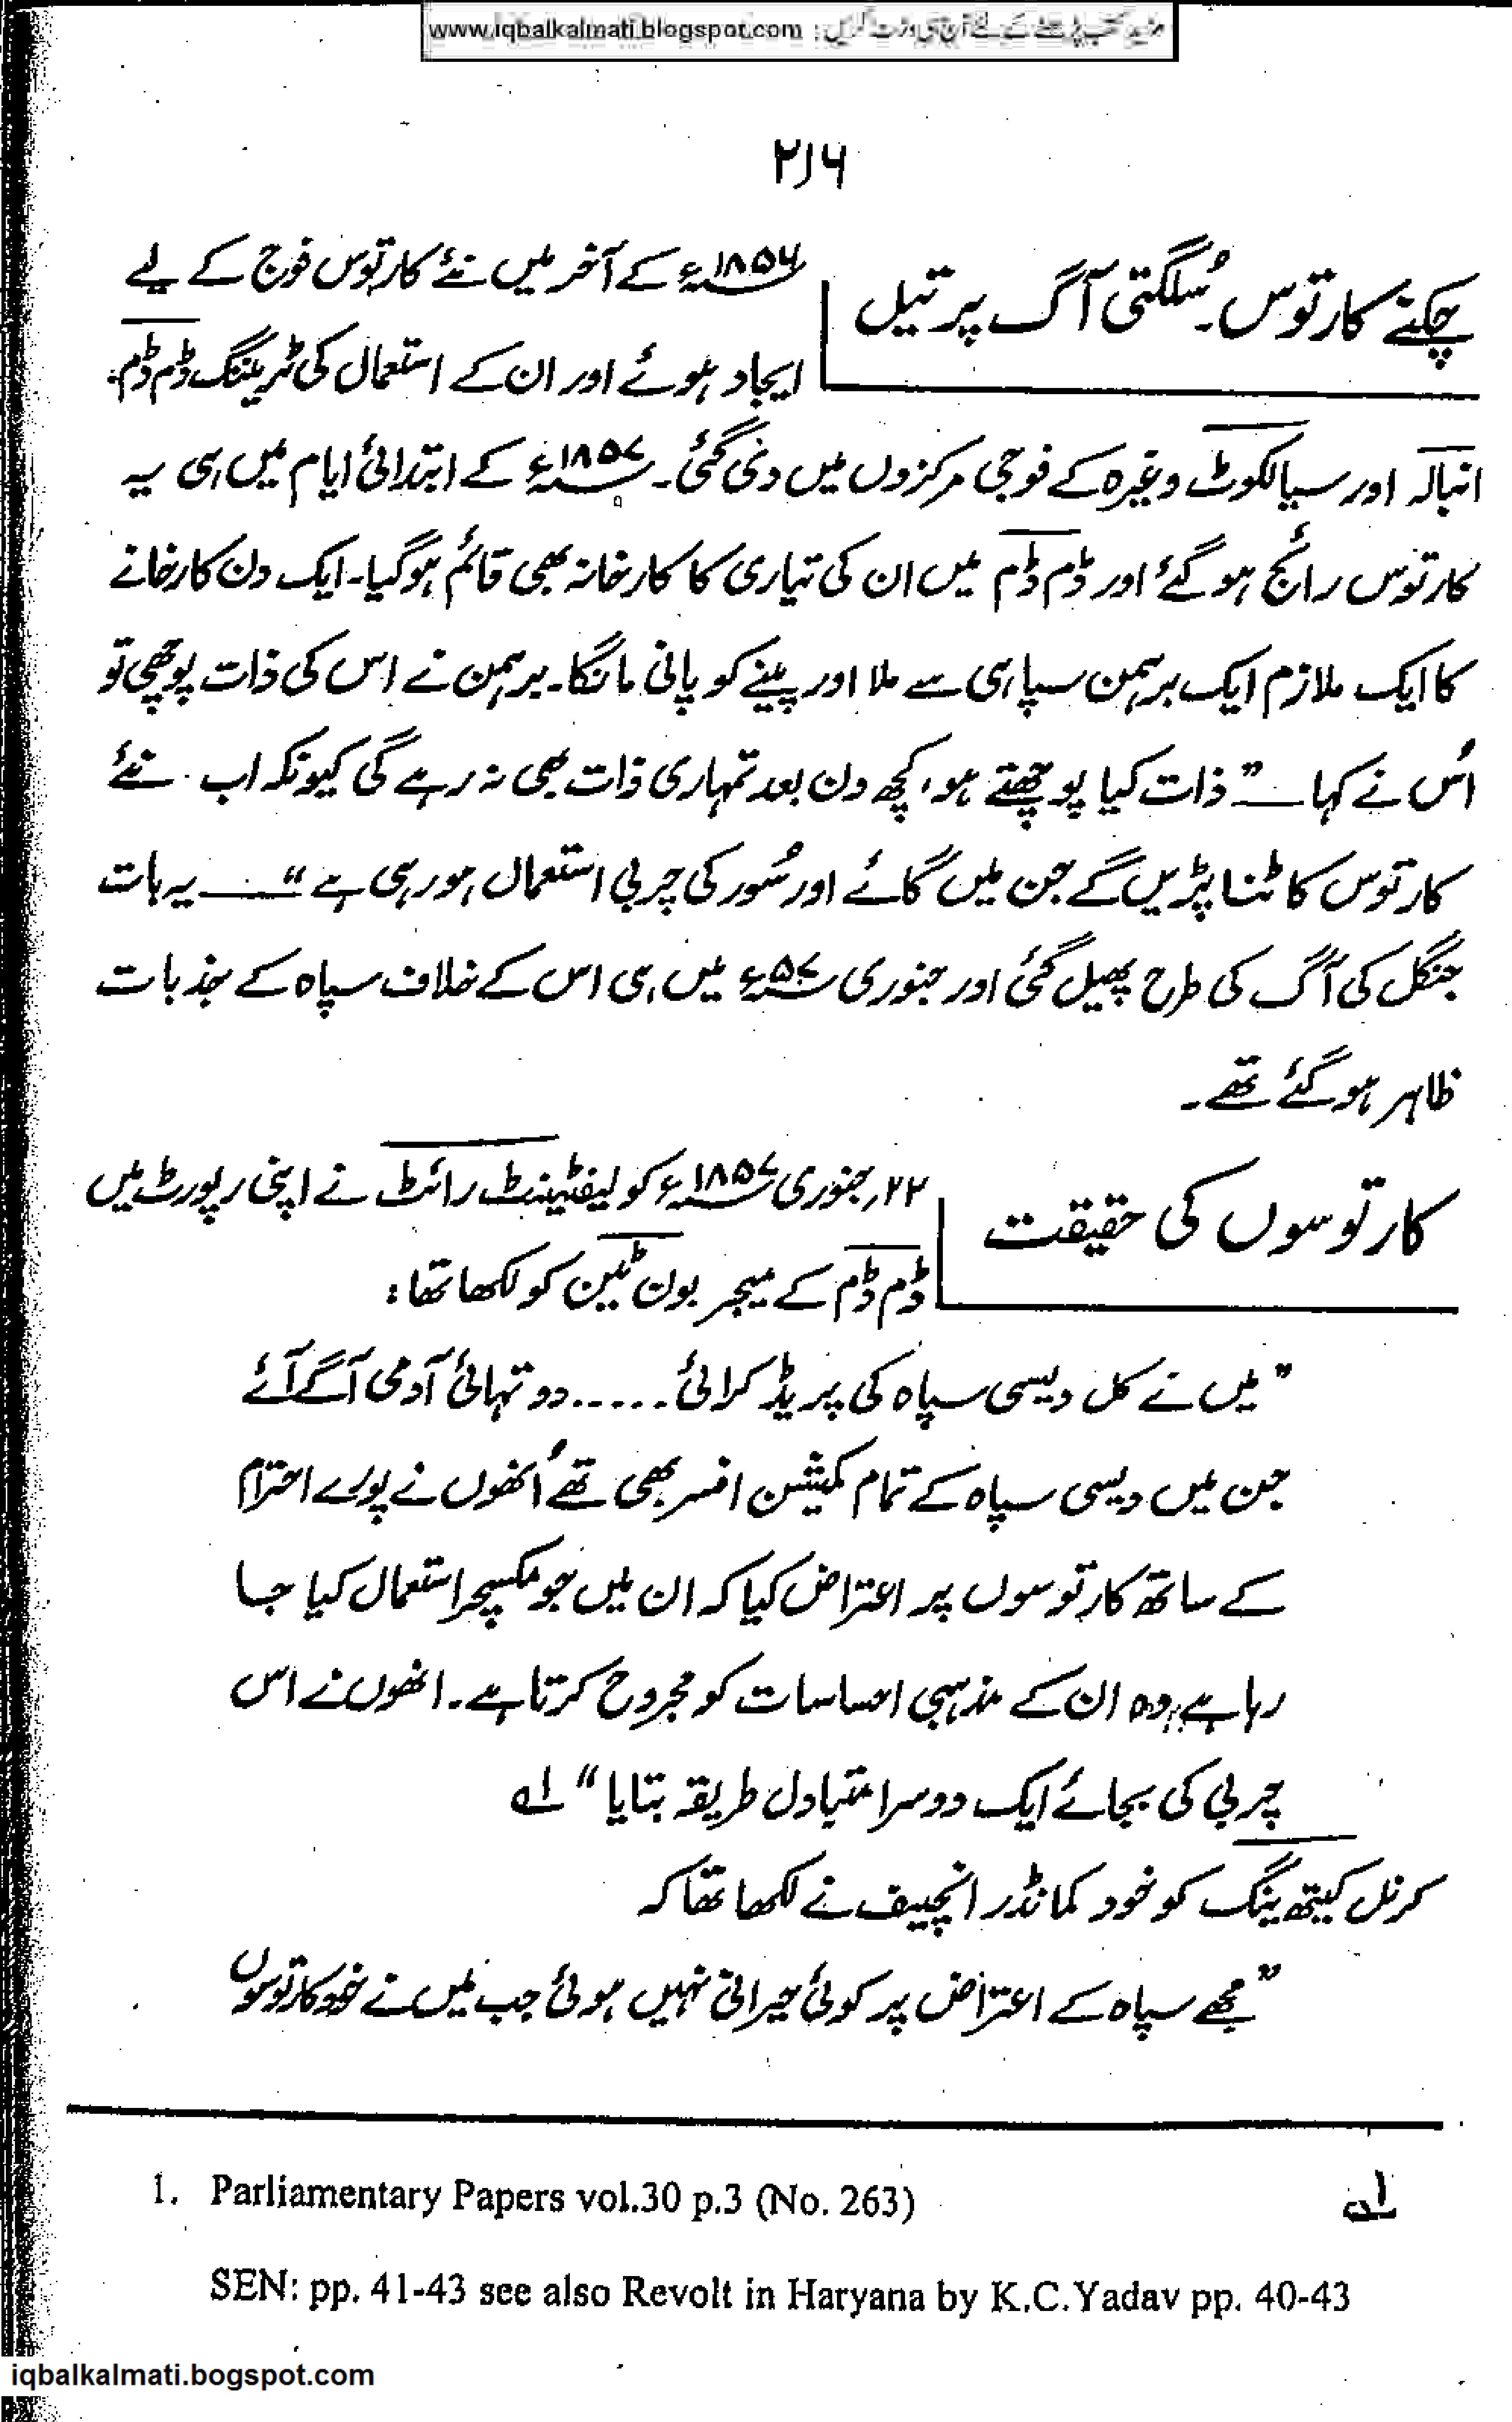 www.iqbalkalmati.blogspot.com : مزید کتب پڑھنے کے لئے آج ہی وزٹ کریں
۲۱۶
چکنے کارتوس۔ سُلگتی آگ پر تیل
۱۸۵۶ء کے آخر میں نئے کارتوس فوج کے لیے
ایجاد ہوئے اور ان کے استعمال کی ٹریننگ ڈم ڈم،
انبالہ اور سیالکوٹ وغیرہ کے فوجی مرکزوں میں دی گئی۔ ۱۸۵۷ء کے ابتدائی ایام میں ہی یہ
کارتوس رائج ہو گئے اور ڈم ڈم میں ان کی تیاری کا کارخانہ بھی قائم ہو گیا۔ ایک دن کارخانے
کا ایک ملازم ایک برہمن سپاہی سے ملا اور پینے کو پانی مانگا۔ برہمن نے اس کی ذات پوچھی تو
اُس نے کہا ــــ ”ذات کیا پوچھتے ہو، کچھ دن بعد تمہاری ذات بھی نہ رہے گی کیونکہ اب نئے
کارتوس کاٹنا پڑیں گے جن میں گائے اور سُور کی چربی استعمال ہو رہی ہے“ ــــ یہ بات
جنگل کی آگ کی طرح پھیل گئی اور جنوری ۵۷ء میں ہی اس کے خلاف سپاہ کے جذبات
ظاہر ہو گئے تھے۔
کارتوسوں کی حقیقت
۲۲؍ جنوری ۱۸۵۷ء کو لیفٹیننٹ رائٹ نے اپنی رپورٹ میں
ڈم ڈم کے میجر بون ٹین کو لکھا تھا:
”میں نے کل دیسی سپاہ کی پریڈ کرائی...... دو تہائی آدمی آگے آئے
جن میں دیسی سپاہ کے تمام کمیشن افسر بھی تھے اُنھوں نے پورے احترام
کے ساتھ کارتوسوں پر اعتراض کیا کہ ان میں جو مکسچر استعمال کیا جا
رہا ہے، وہ ان کے مذہبی احساسات کو مجروح کرتا ہے۔ انھوں نے اس
چربی کی بجائے ایک دوسرا متبادل طریقہ بتایا“ ۱ہ
کرنل کیتھ ینگ کو خود کمانڈر انچیف نے لکھا تھا کہ
”مجھے سپاہ کے اعتراض پر کوئی حیرانی نہیں ہوئی جب میں نے خود کارتوسوں
۱ہ
1. Parliamentary Papers vol.30 p.3 (No. 263)
SEN: pp. 41-43 see also Revolt in Haryana by K.C.Yadav pp. 40-43
iqbalkalmati.bogspot.com